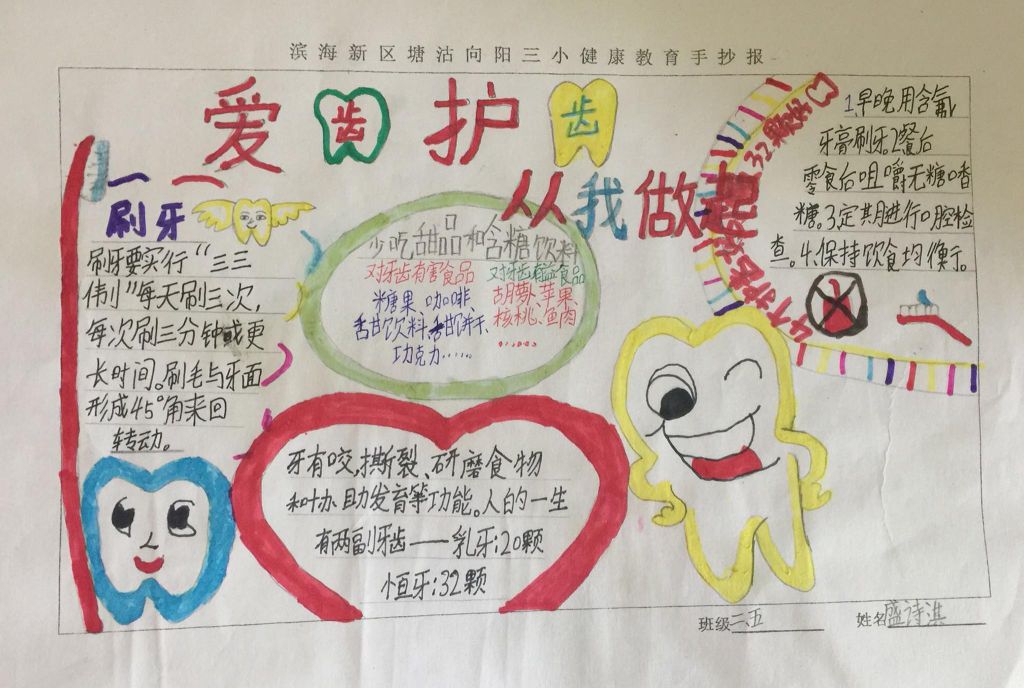 滨海新区塘沽向阳三小健康教育手抄报
爱齿护齿
从我做起
刷牙
刷牙要实行“三三
制”每天刷三次,
每次刷三分钟或更
长时间。刷毛与牙面
形成45°角来回
转动。
少吃甜品和含糖饮料
对牙齿有害食品
糖果、咖啡
甜饮料、甜饼干、
巧克力……
食品
胡萝卜、苹果
核桃、鱼肉
……
牙有咬、撕裂、研磨食物
和协助发育等功能。人的一生
有两副牙齿——乳牙:20颗
恒牙:32颗
32颗
1.早晚用含氟
牙膏刷牙。2.餐后
零食后咀嚼无糖口香
糖。3.定期进行口腔检
查。4.保持饮食均衡。
班级 二、五
姓名 盛诗淇